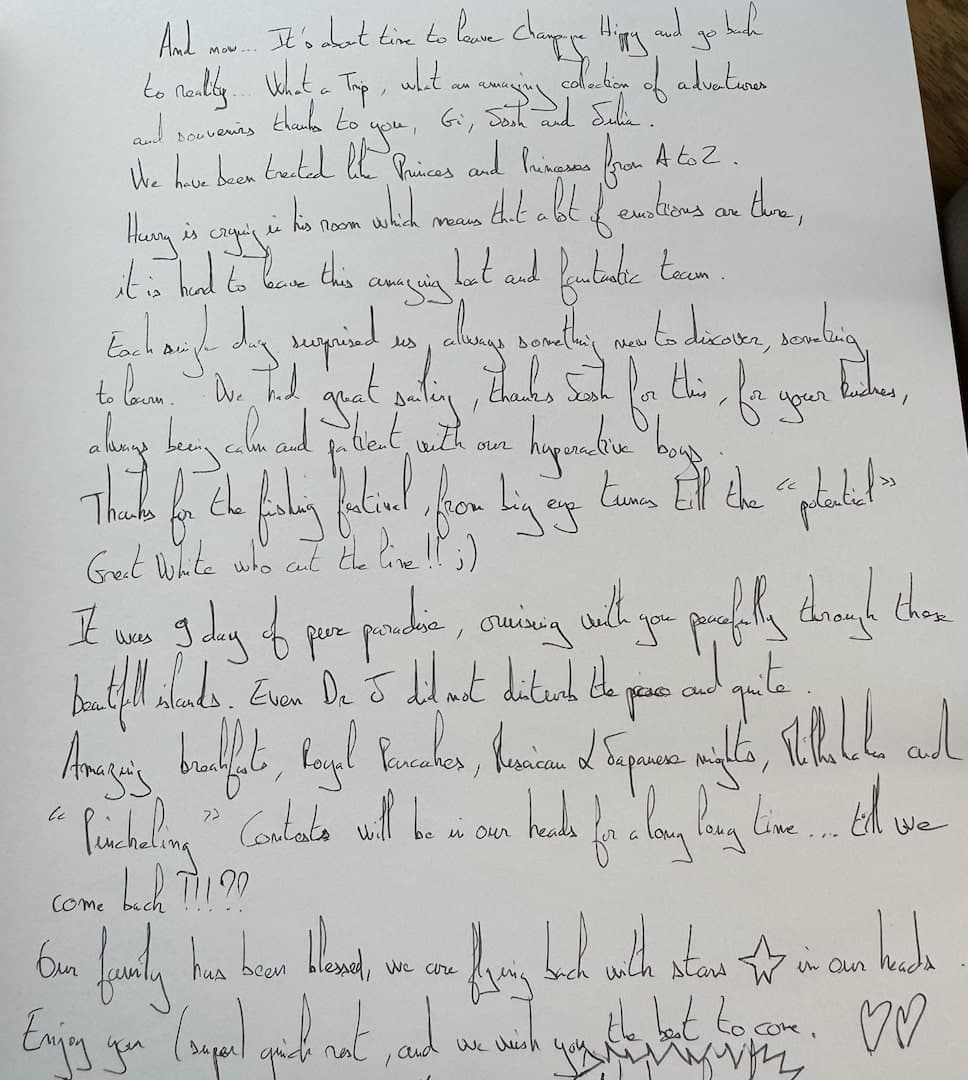 And now... It's about time to leave Champagne Hippy and go back
to reality... What a Trip, what an amazing collection of adventures
and souvenirs thanks to you, Gi, Josh and Julia.
We have been treated like Princes and Princesses from A to Z.
Harry is crying in his room which means that a lot of emotions are there,
it is hard to leave this amazing boat and fantastic team.
Each single day surprised us, always something new to discover, something
to learn. We had great sailing, thanks Josh for this, for your kindness,
always being calm and patient with our hyperactive boys.
Thanks for the fishing festival, from big eye tunas till the "potential"
Great White who cut the line!! ;)
It was 9 day of pure paradise, cruising with you peacefully through these
beautifull islands. Even Dr J did not disturb the and quite.
Amazing breakfasts, Royal Pancakes, Mexican & Japanese nights, Milkshakes and
" " Contests will be in our heads for a long long time.... till we
come back !!!??
Our family has been blessed, we are flying back with stars ☆ in our heads.
Enjoy your (super) quick rest, and we wish you the best to come. ♡♡